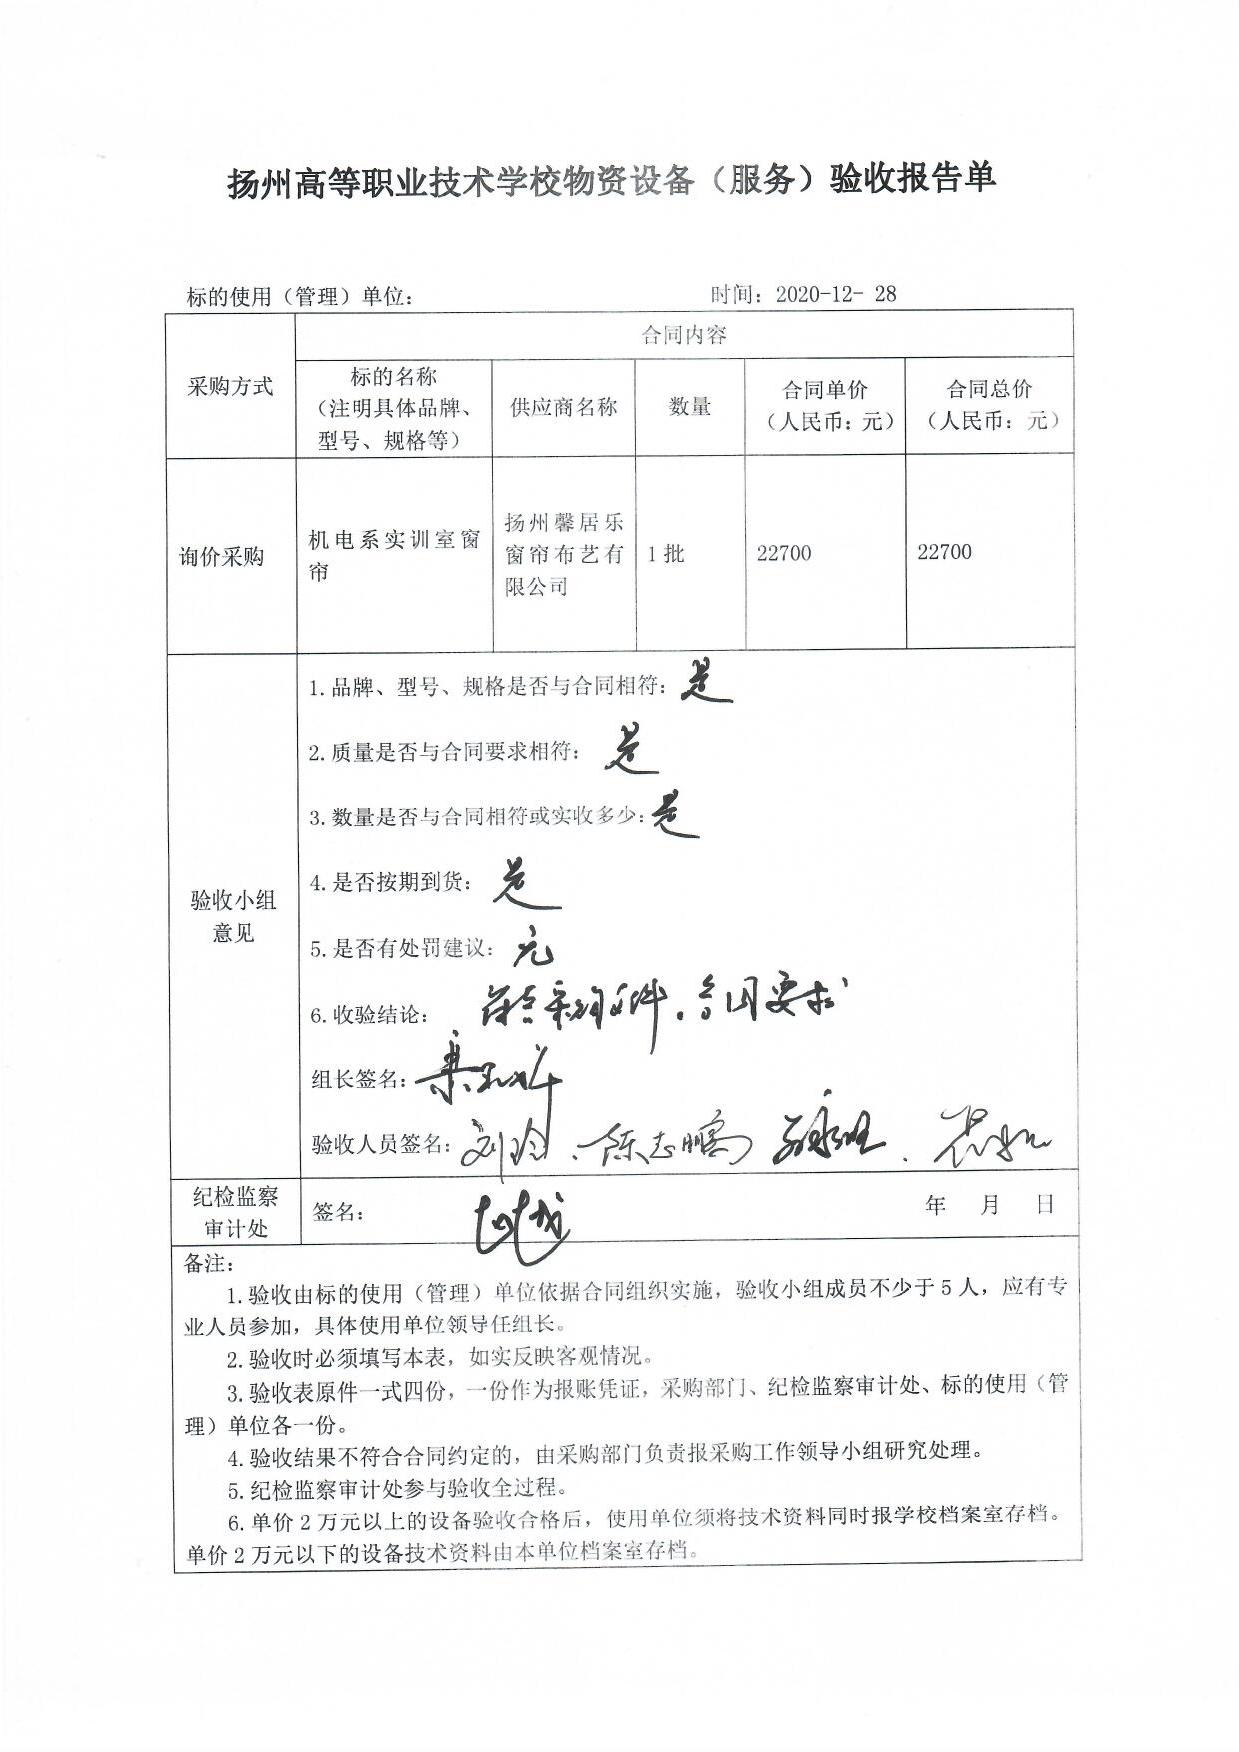 扬州高等职业技术学校物资设备（服务）验收报告单
标的使用（管理）单位： 时间：2020-12- 28
采购方式
合同内容
标的名称
（注明具体品牌、
型号、规格等）
供应商名称
数量
合同单价
（人民币：元）
合同总价
（人民币：元）
询价采购
机电系实训室窗
帘
扬州馨居乐
窗帘布艺有
限公司
1 批
22700
22700
验收小组
意见
1.品牌、型号、规格是否与合同相符：是
2.质量是否与合同要求相符：是
3.数量是否与合同相符或实收多少：是
4.是否按期到货：是
5.是否有处罚建议：无
6.收验结论：符合采购文件、合同要求
组长签名：
验收人员签名：刘玲、陈志鹏
纪检监察
审计处
签名：
年 月 日
备注：
1.验收由标的使用（管理）单位依据合同组织实施，验收小组成员不少于 5 人，应有专
业人员参加，具体使用单位领导任组长。
2.验收时必须填写本表，如实反映客观情况。
3.验收表原件一式四份，一份作为报账凭证，采购部门、纪检监察审计处、标的使用（管
理）单位各一份。
4.验收结果不符合合同约定的，由采购部门负责报采购工作领导小组研究处理。
5.纪检监察审计处参与验收全过程。
6.单价 2 万元以上的设备验收合格后，使用单位须将技术资料同时报学校档案室存档。
单价 2 万元以下的设备技术资料由本单位档案室存档。